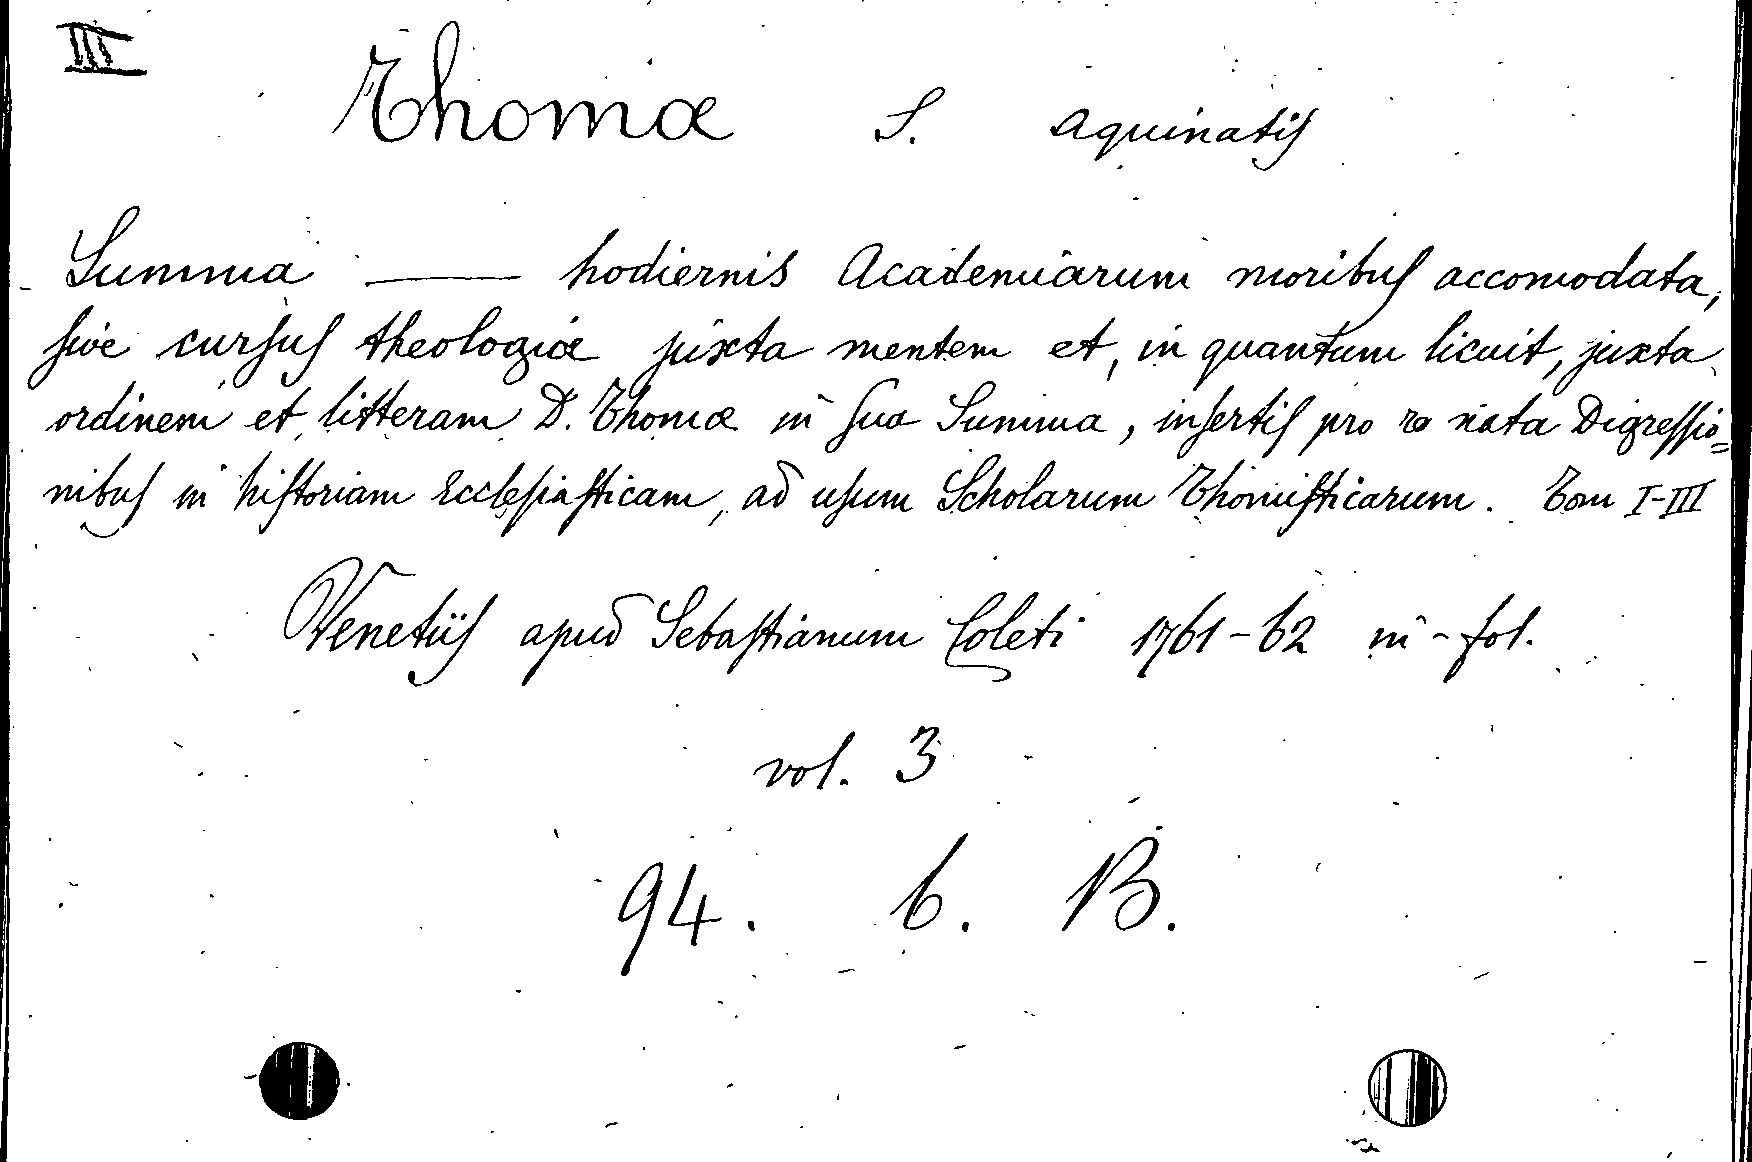 III
Thomæ S. Aquinatis
Summa —— hodiernis Academiarum moribus accomodata,
sive cursus theologiæ juxta mentem et, in quantum licuit, juxta
ordinem et litteram D. Thomæ in sua Summa, insertis pro re nata Digressio=
nibus in historiam Ecclesiasticam, ad usum Scholarum Thomisticarum. Tom I-III
Venetiis apud Sebastianum Coleti 1761-62 in-fol.
vol. 3
94. b. B.